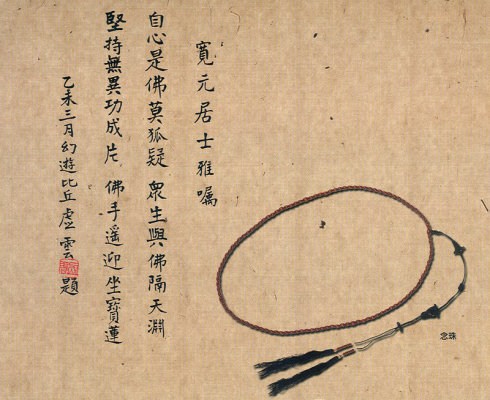 寬元居士雅囑
自心是佛莫狐疑 衆生與佛隔天淵
堅持無異功成片 佛手遥迎坐寶蓮
乙未三月幻遊比丘虛雲題
念珠